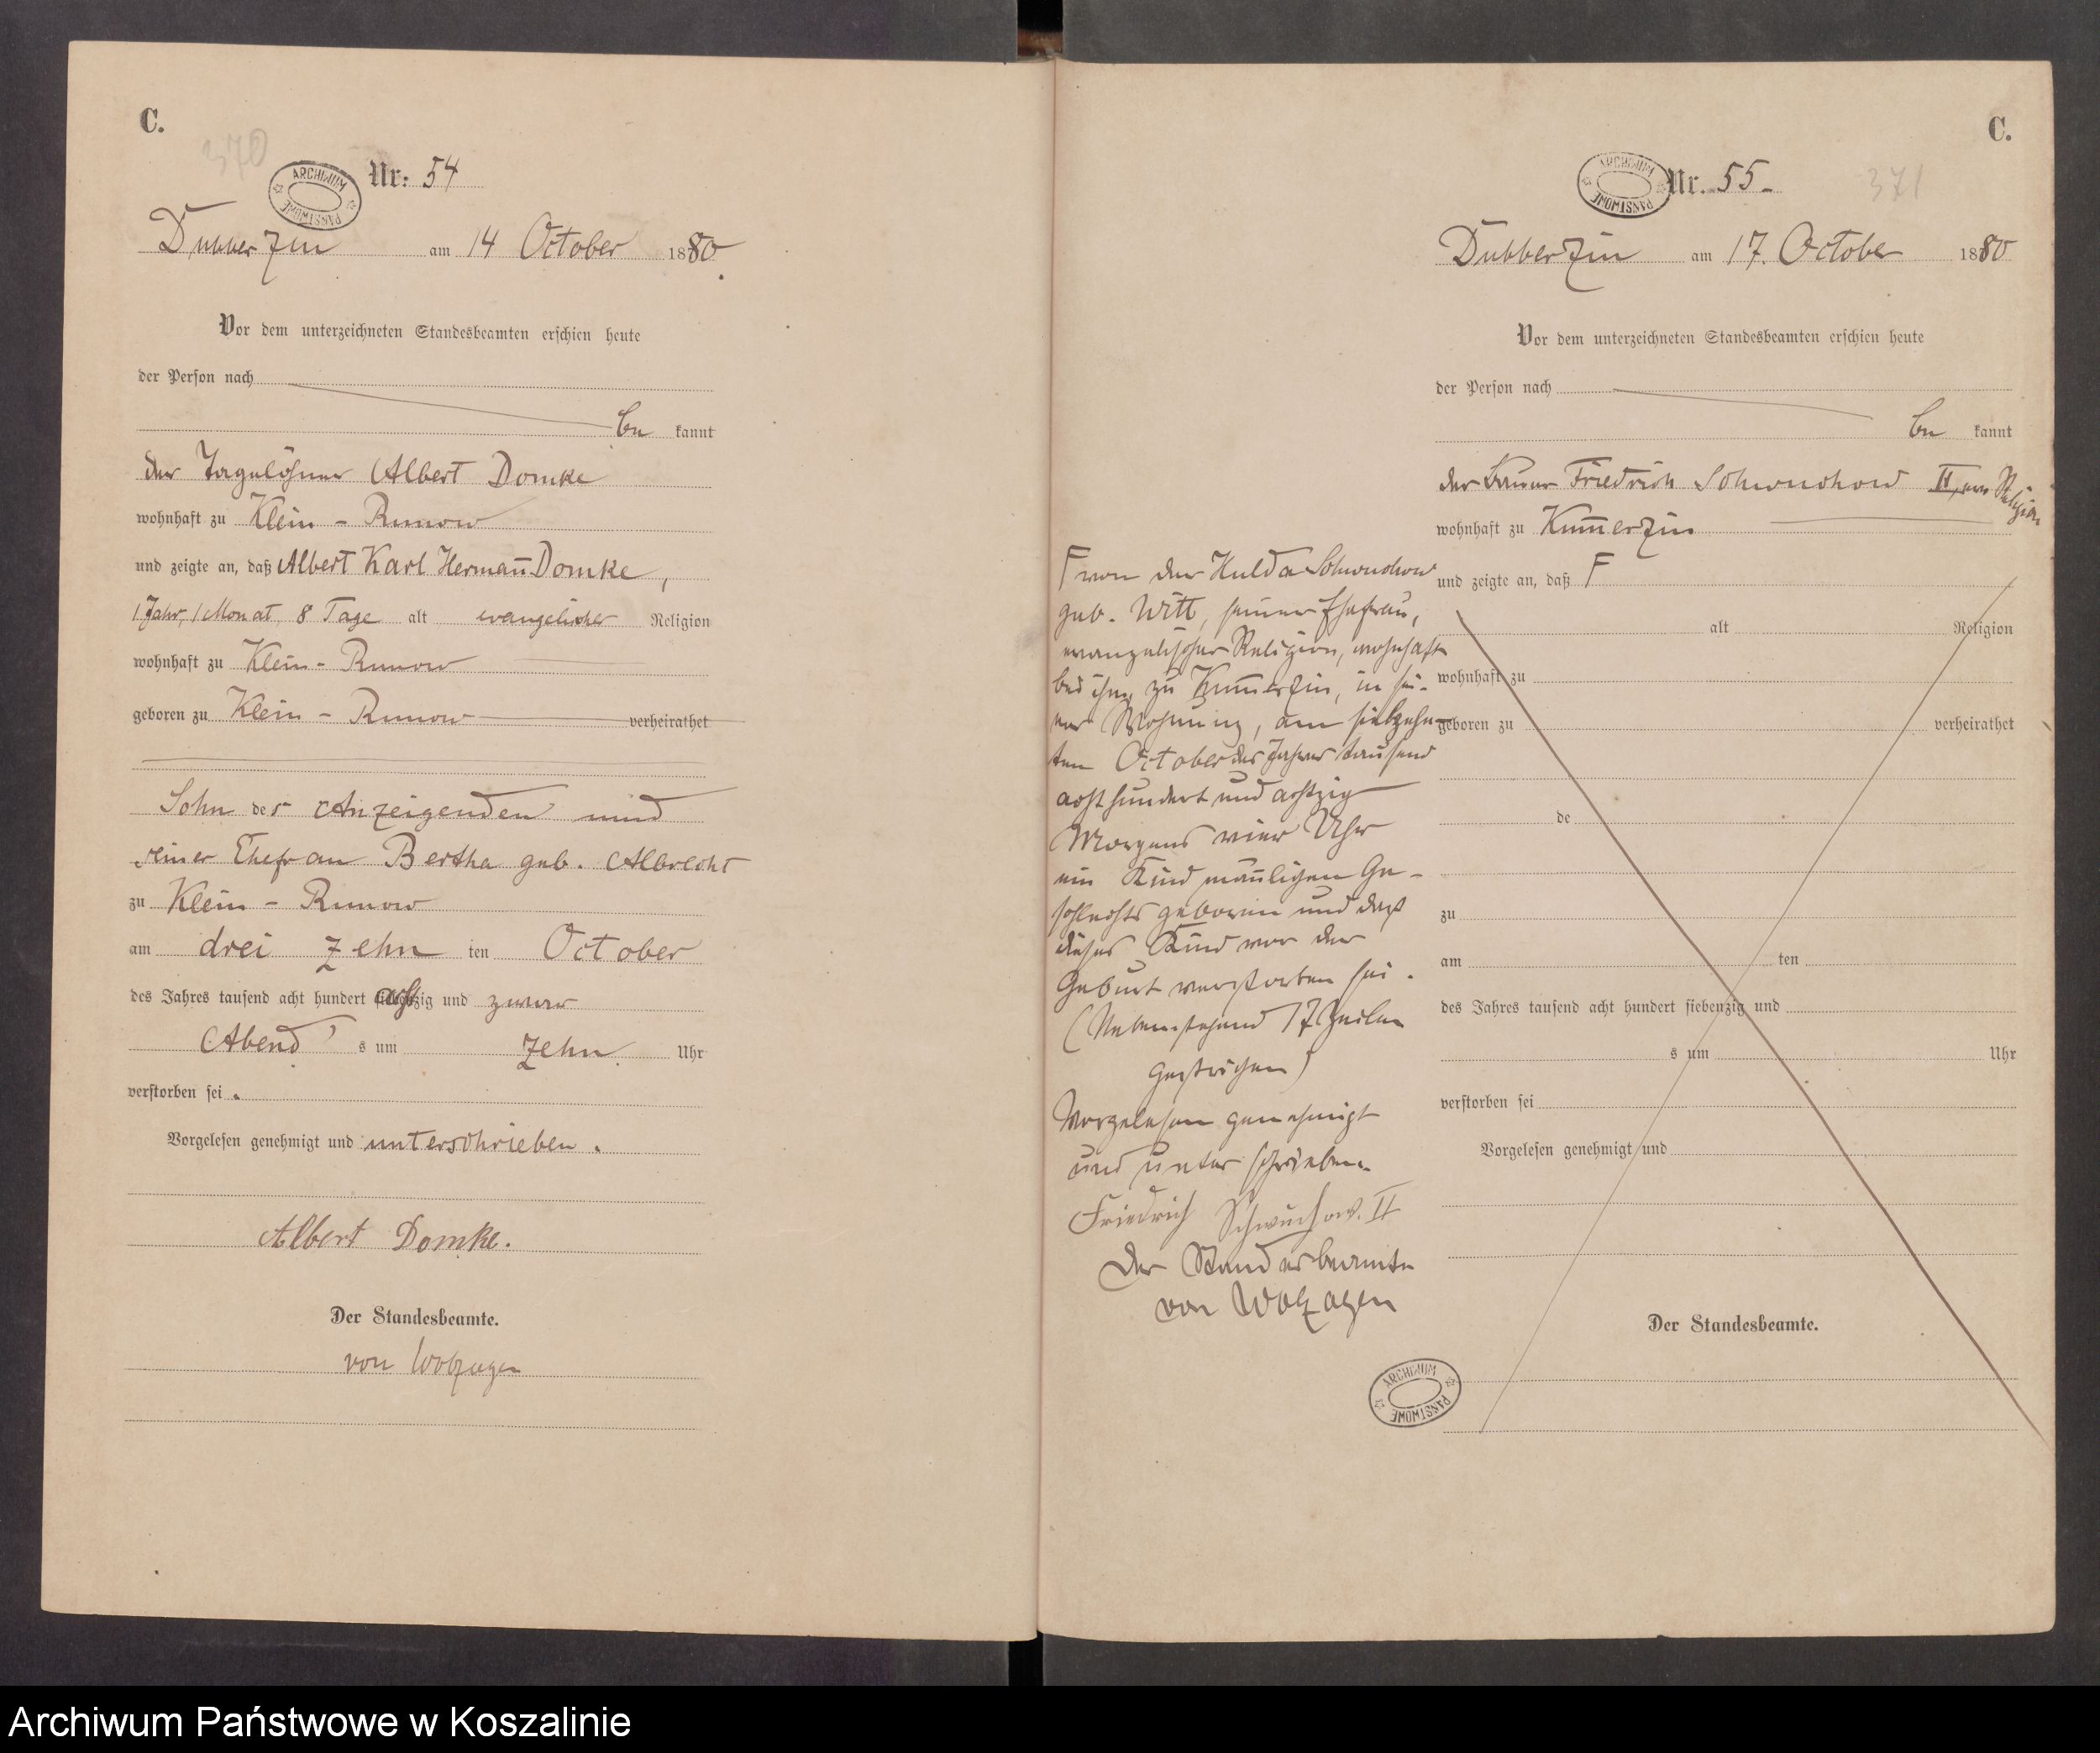 C.
370
ARCHIWUM PAŃSTWOWE
Nr. 54
Dubberzin am 14 October 1880
Vor dem unterzeichneten Standesbeamten erschien heute
der Person nach
be kannt
der Tagelöhner Albert Domke
wohnhaft zu Klein - Runow
und zeigte an, daß Albert Karl Herman̄ Domke,
1 Jahr, 1 Monat, 8 Tage alt evangelischer Religion
wohnhaft zu Klein - Runow
geboren zu Klein - Runow verheirathet
Sohn des Anzeigenden und
seiner Ehefrau Bertha geb. Albrecht
zu Klein - Runow
am drei zehn ten October
des Jahres tausend acht hundert achtzig und zwar
Abend's um zehn Uhr
verstorben sei.
Vorgelesen genehmigt und unterschrieben.
Albert Domke.
Der Standesbeamte.
von Wolzogen
C.
371
ARCHIWUM PAŃSTWOWE
Nr. 55-
Dubberzin am 17. October 1880
Vor dem unterzeichneten Standesbeamten erschien heute
der Person nach
be kannt
der Bauer Friedrich Schwuchow II, ev. Religion
wohnhaft zu Kum̄erzin
und zeigte an, daß F
alt Religion
wohnhaft zu
geboren zu verheirathet
de
zu
am ten
des Jahres tausend acht hundert siebenzig und
s um Uhr
verstorben sei
Vorgelesen genehmigt und
Der Standesbeamte.
F von der Hulda Schwuchow
geb. Witt, seiner Ehefrau,
evangelischer Religion, wohnhaft
bei ihm zu Kum̄erzin, in sei-
ner Wohnung, am siebzehn-
ten October des Jahres tausend
acht hundert und achtzig
Morgens vier Uhr
ein Kind män̄lichen Ge-
schlechts geboren und daß
dieses Kind vor der
Geburt verstorben sei.
(Nebenstehend 17 Zeilen
gestrichen)
Vorgelesen genehmigt
und unterschrieben.
Friedrich Schwuchow. II
Der Standesbeamte
von Wolzogen
ARCHIWUM PAŃSTWOWE
Archiwum Państwowe w Koszalinie